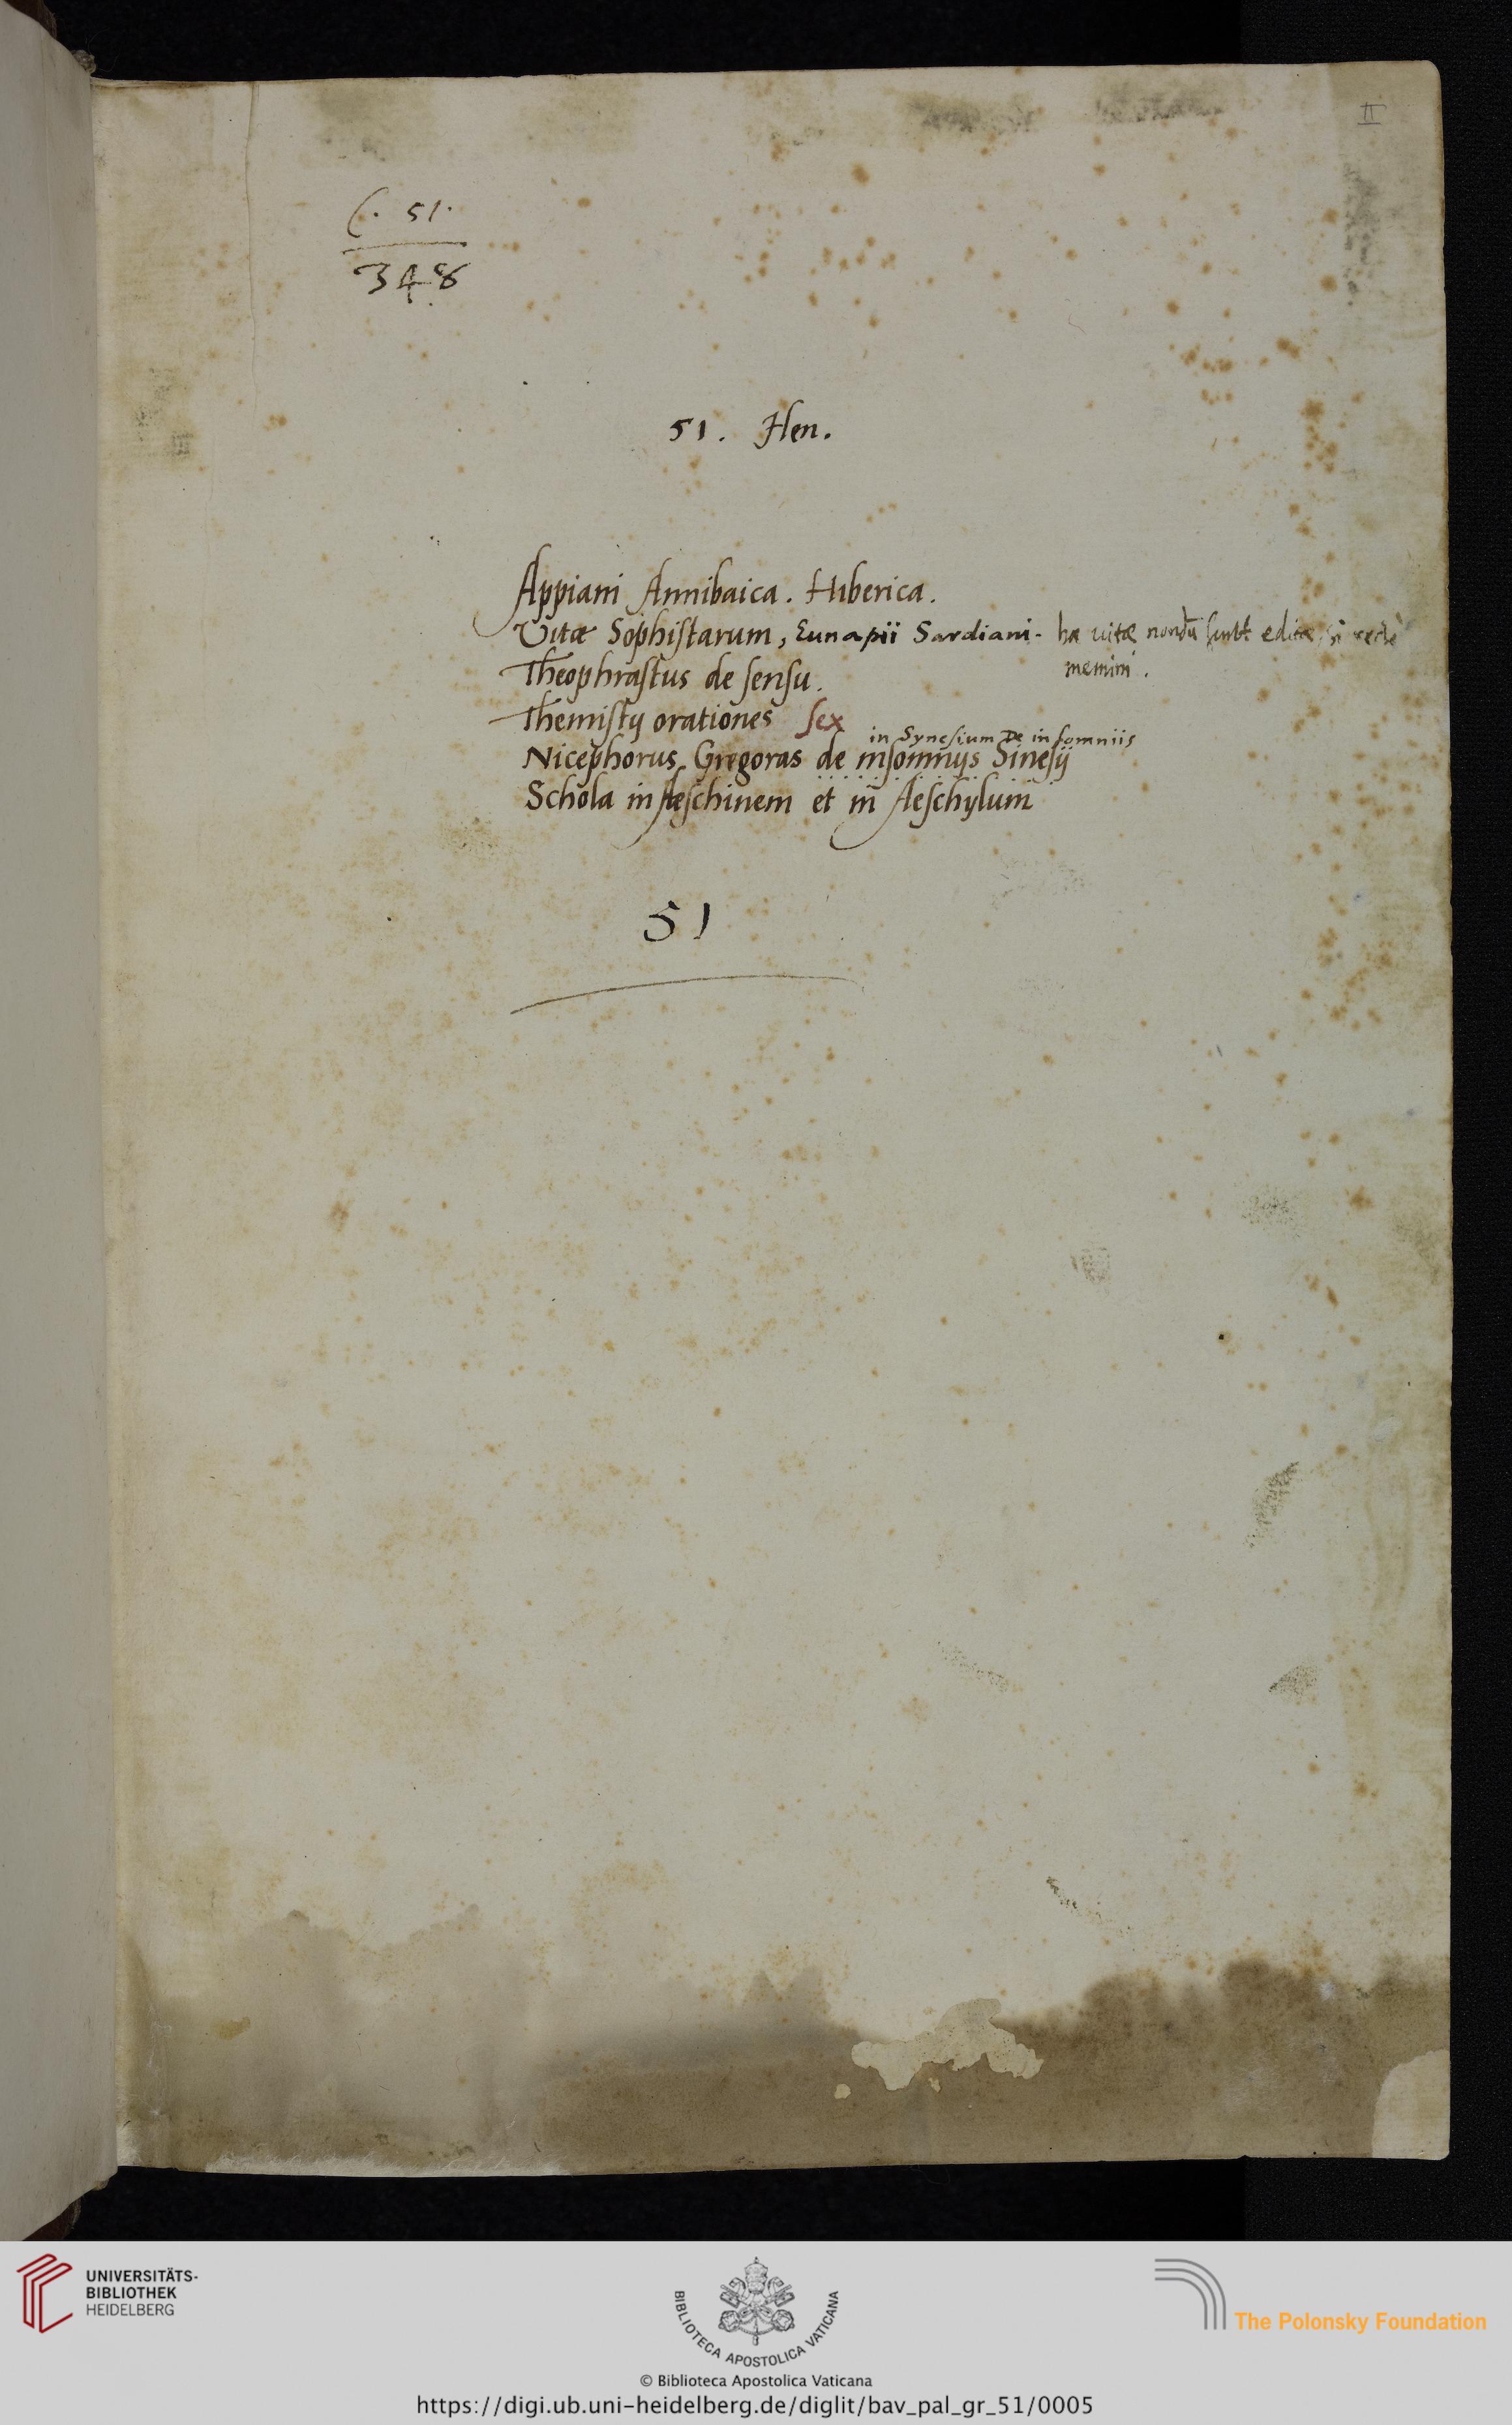 II
C. 51.
348
51. Hen.
Appiani Annibaica. Hiberica.
Vitæ Sophistarum, Eunapii Sardiani. hæ uitæ nondū sunt editæ, si recte
memini.
Theophrastus de sensu.
Themistij orationes sex
in Synesium De insomniis
Nicephorus Gregoras de insomnijs Sinesij
Schola in Aeschinem et in Aeschylum
51
UNIVERSITÄTS-
BIBLIOTHEK
HEIDELBERG
BIBLIOTECA APOSTOLICA VATICANA
The Polonsky Foundation
© Biblioteca Apostolica Vaticana
https://digi.ub.uni-heidelberg.de/diglit/bav_pal_gr_51/0005